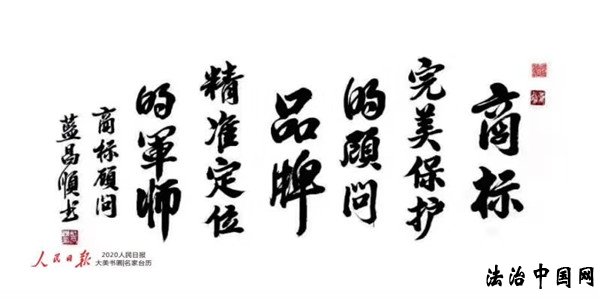 商标
完美保护
的顾问
品牌
精准定位
的軍师
商标顾问
蓝昌顺书
人民日报
2020人民日报
大美书画|名家台历
法治中国网